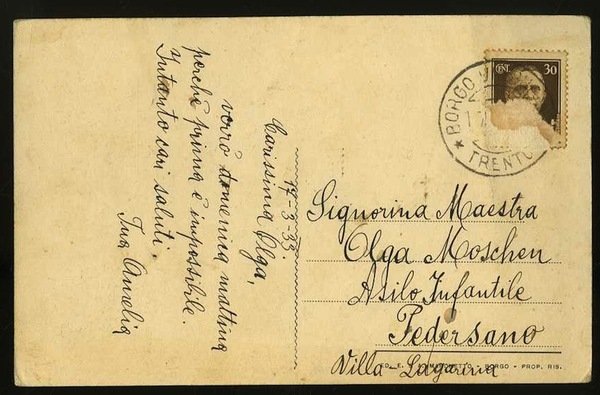 17-3-33.
Carissima Olga,
verrò domenica mattina
perchè prima è impossibile.
Intanto cari saluti.
Tua Amelia
CENT 30
BORGO
TRENTO
Signorina Maestra
Olga Moschen
Asilo Infantile
Pedersano
Villa-Lagarina
BORGO - PROP. RIS.